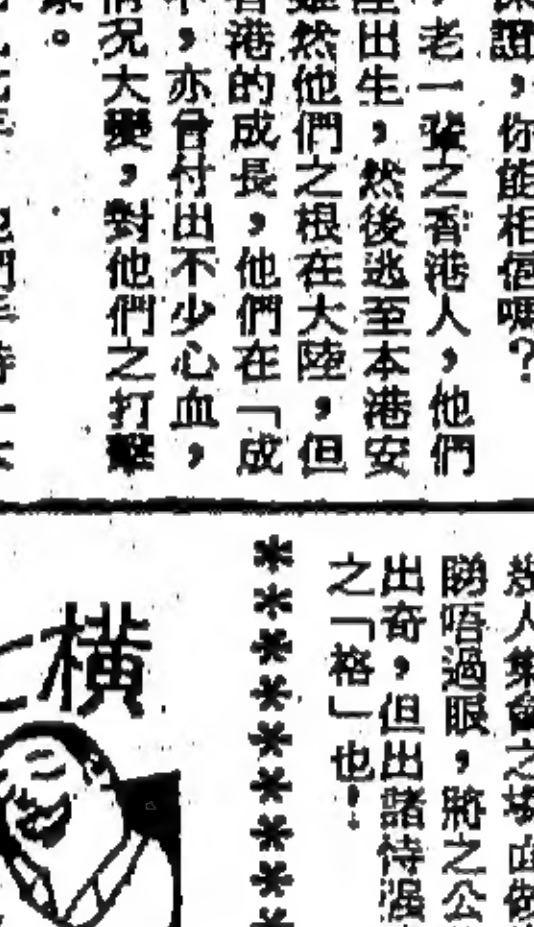 保證，你能相信嗎？
，老一輩之香港人，他們
出生，然後逃至本港安
雖然他們之根在大陸，但
香港的成長，他們在「成
，亦曾付出不少心血，
情況大變，對他們之打擊
。
們手持一
人集會之場
睇唔過眼，將之公
出奇，但出諸待
之「格」也！
＊＊＊＊＊＊＊＊＊
橫